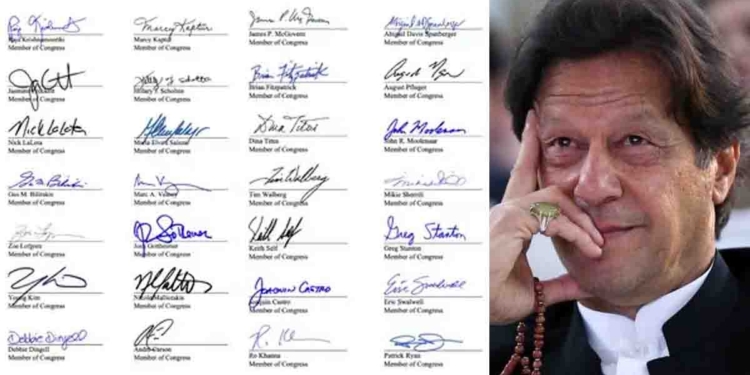 Raja Krishnamoorthi
Member of Congress
Marcy Kaptur
Marcy Kaptur
Member of Congress
James P. McGovern
Member of Congress
Abigail Davis Spanberger
Member of Congress
Member of Congress
Hillary J. Scholten
Hillary J. Scholten
Member of Congress
Brian Fitzpatrick
Brian Fitzpatrick
Member of Congress
August Pfluger
Member of Congress
Nick LaLota
Nick LaLota
Member of Congress
María Elvira Salazar
Member of Congress
Dina Titus
Dina Titus
Member of Congress
John Moolenaar
John R. Moolenaar
Member of Congress
Gus Bilirakis
Gus M. Bilirakis
Member of Congress
Marc A. Veasey
Member of Congress
Tim Walberg
Tim Walberg
Member of Congress
Mikie Sherrill
Mikie Sherrill
Member of Congress
Zoe Lofgren
Member of Congress
Josh Gottheimer
Member of Congress
Keith Self
Keith Self
Member of Congress
Greg Stanton
Greg Stanton
Member of Congress
Young Kim
Member of Congress
Nicole Malliotakis
Member of Congress
Joaquin Castro
Joaquin Castro
Member of Congress
Eric Swalwell
Eric Swalwell
Member of Congress
Debbie Dingell
Debbie Dingell
Member of Congress
André Carson
Member of Congress
Ro Khanna
Member of Congress
Patrick Ryan
Member of Congress